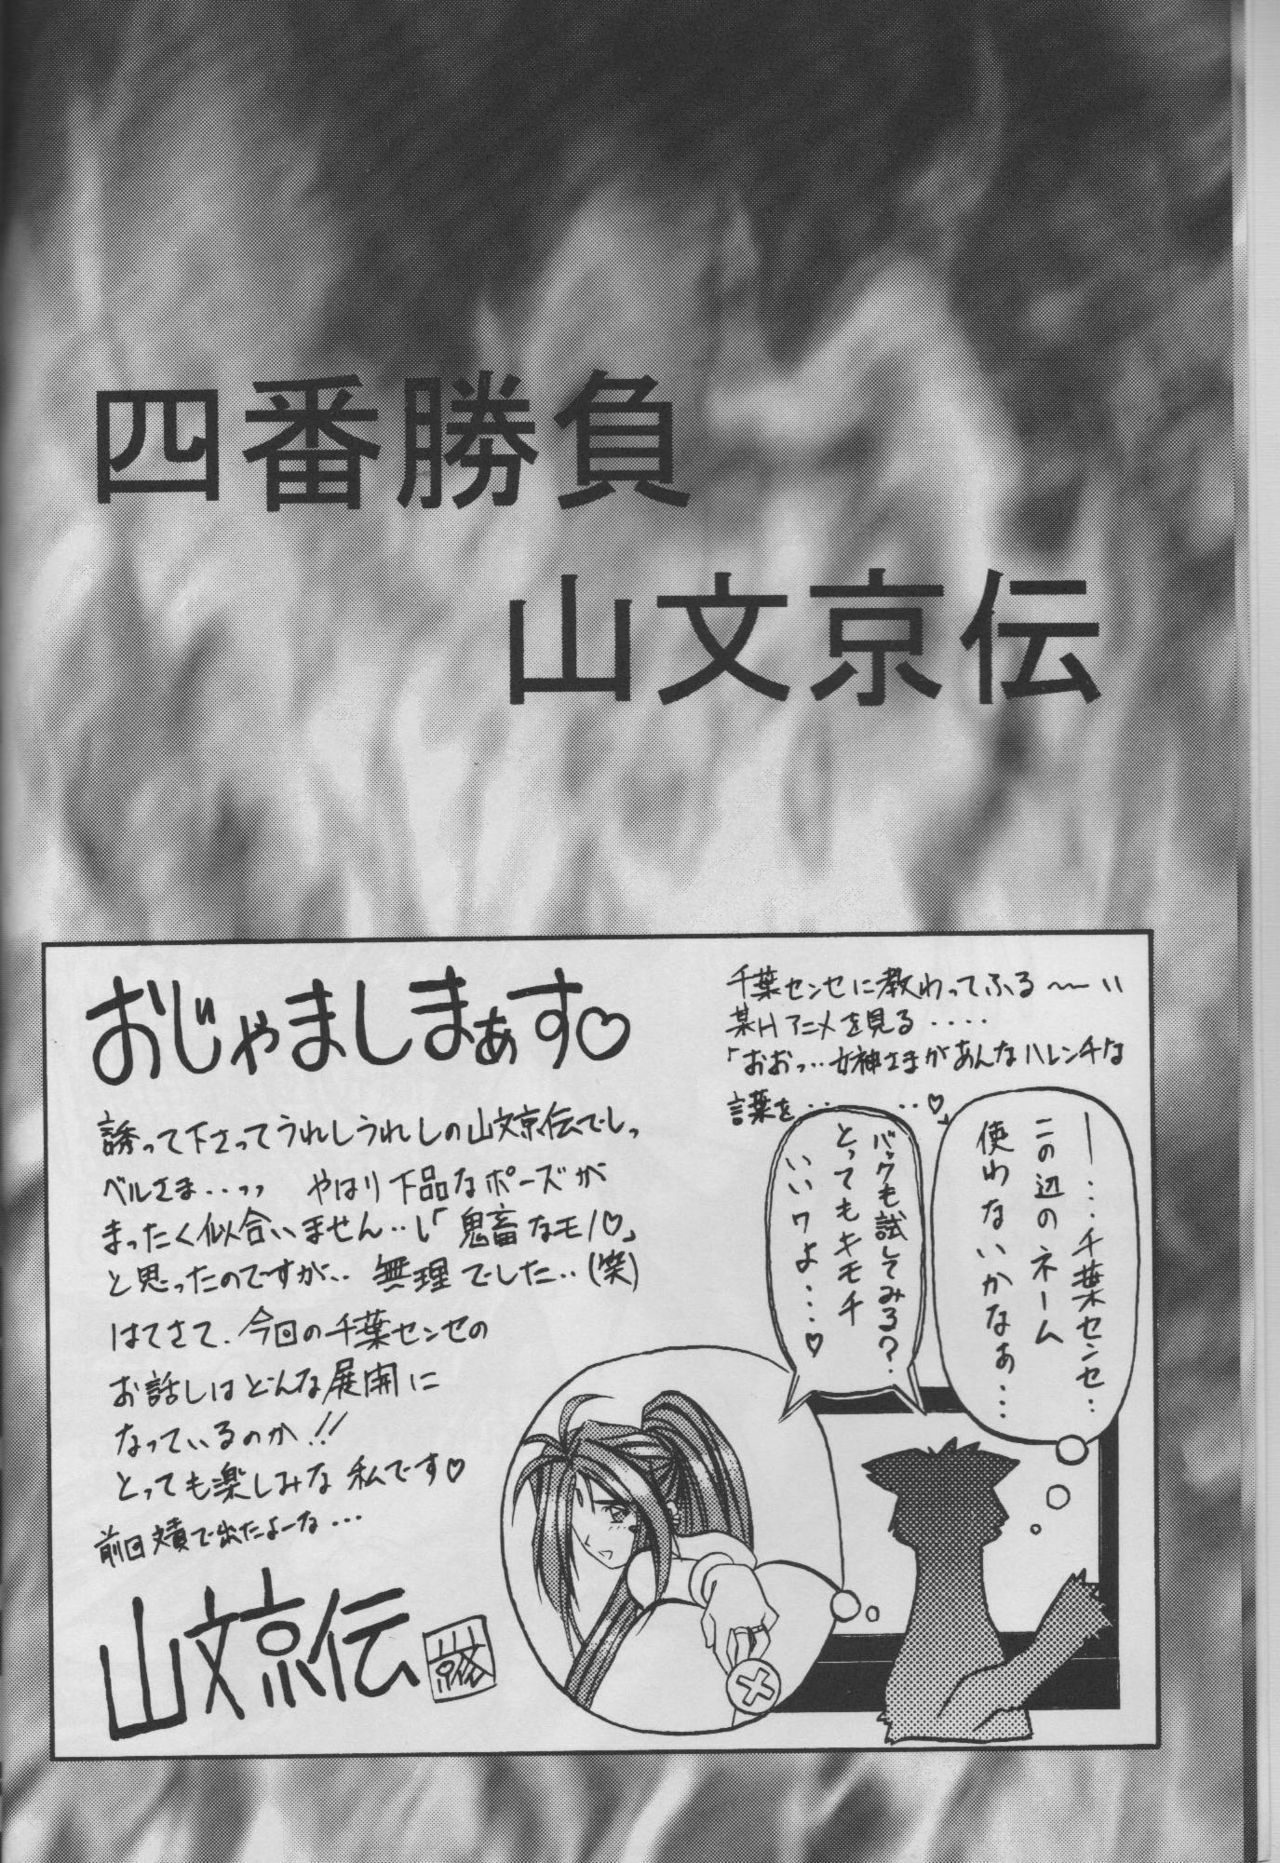 四番勝負
山文京伝
おじゃましまぁす♡
誘って下さってうれしうれしの山文京伝でしっ
ベルさま‥ッッ やはり下品なポーズが
まったく似合いません‥し「鬼畜なモノ♡」
と思ったのですが‥ 無理でした‥(笑)
はてさて、今回の千葉センセの
お話しはどんな展開に
なっているのか!!
とっても楽しみな 私です♡
前回 文責で出たよーな…
山文京伝
千葉センセに教わってふる〜い
某Hアニメを見る‥‥
「おおっ…女神さまがあんなハレンチな
言葉を‥‥‥♡」
ー…千葉センセ‥
この辺のネーム
使わないかなぁ…
バックも試してみる?‥
とってもキモチ
いいワよ…♡